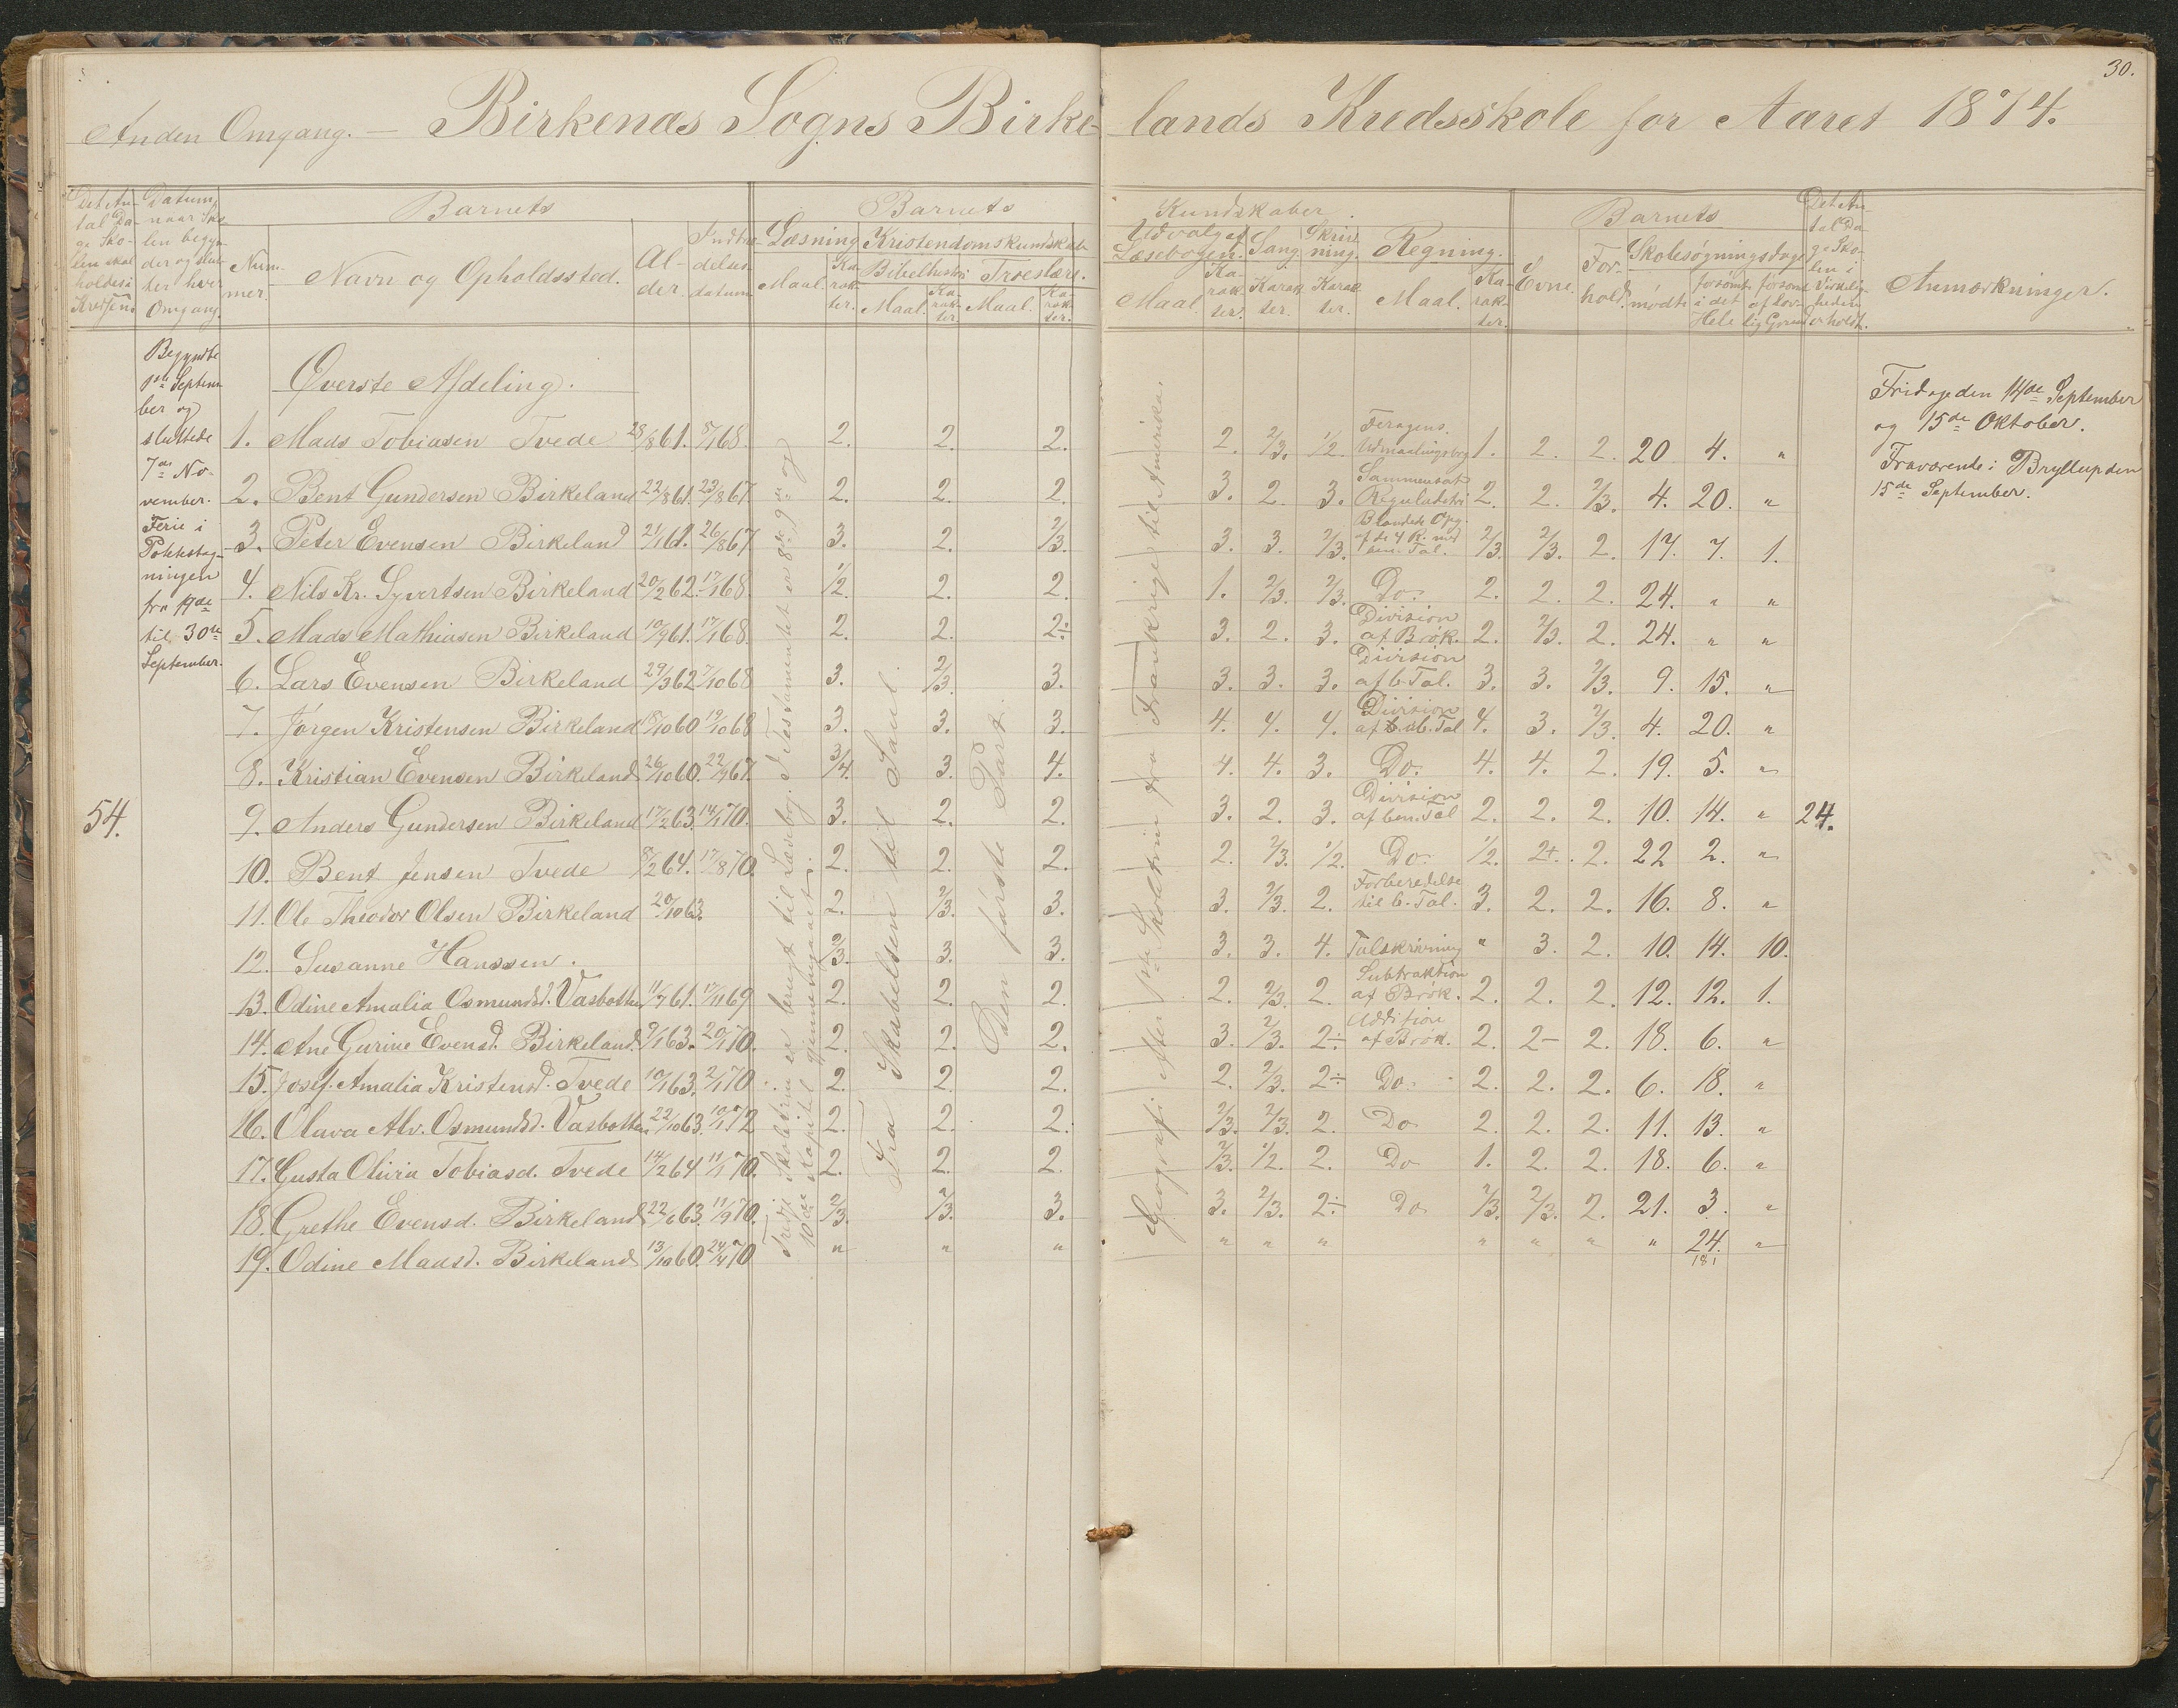 30.
Anden Omgang. — Birkenæs Sogns Birkelands Kredsskole for Aaret 1874.
Det Antal Dage Skolen skal holdes i Kredsen
Datum, naar Skolen begynder og slutter hver Omgang.
Barnets
Nummer.
Navn og Opholdssted.
Alder.
Indtrædelsesdatum
Barnets Kundskaber.
Læsning
Maal.
Karakter.
Kristendomskundskab
Bibelhistori
Maal.
Karakter.
Troeslære.
Maal.
Karakter.
Udvalget Læsebogen.
Maal.
Karakter.
Sang.
Karakter.
Skrivning.
Karakter.
Regning.
Maal.
Karakter.
Barnets
Evne.
Forhold.
Skolesøgningsdage
mødte
forsømte i det Hele
forsømt af lovlig Grund
Det Antal Dage Skolen i Virkeligheden er holdt.
Anmærkninger.
Begyndte
1ste September og
sluttede
7de November.
Ferie i
Potetestagningen
fra 19de
til 30te
September.
54.
Øverste Afdeling.
1. Mads Tobiasen Tvede 28/8 61. 5/1 68. 2. 2. 2. 2. 2/3. 1/2. Udmaalingsbog 1. 2. 2. 20 4. "
2. Bent Gundersen Birkeland 22/8 61. 23/8 67. 2. 2. 2. 3. 2. 3. Sammensat Reguladetri 2. 2. 2/3. 4. 20. "
3. Peter Evensen Birkeland 21/1 61. 26/8 67 3. 2. 2/3. 3. 3. 2/3. Blandede Opg. af de 4 R. med ben. Tal. 2/3. 2/3. 2. 17. 7. 1.
4. Nils Kr. Syvertsen Birkeland 20/2 62. 17/1 68. 1/2. 2. 2. 1. 2/3. 2/3. Do. 2. 2. 2. 24. " "
5. Mads Mathiasen Birkeland 10/9 61. 17/1 68. 2. 2. 2÷ 3. 2. 3. Division af Brøk. 2. 2/3. 2. 24. " "
6. Lars Evensen Birkeland 29/3 62 7/10 68 3. 2/3. 3. 3. 3. 3. Division af b. Tal. 3. 3. 2/3. 9. 15. "
7. Jørgen Kristensen Birkeland 18/10 60 19/10 68 3. 3. 3. 4. 4. 4. Division af ub. Tal 4. 3. 2/3. 4. 20. "
8. Kristian Evensen Birkeland 26/10 60. 22/9 67. 3/4. 3. 4. 4. 4. 3. Do. 4. 4. 2. 19. 5. "
9. Anders Gundersen Birkeland 17/2 63. 14/1 70. 3. 2. 2. 3. 2. 3. Division af ben. Tal 2. 2. 2. 10. 14. " 24.
10. Bent Jensen Tvede 8/2 64. 17/8 70. 2. 2. 2. 2. 2/3. 1/2. Do. 1/2. 2+. 2. 22 2. "
11. Ole Theodor Olsen Birkeland 20/10 63. 2. 2/3. 3. 3. 2/3. 2. Forberedelse til b. Tal. 3. 2. 2. 16. 8. "
12. Susanne Hanssen. 2/3. 3. 3. 3. 3. 4. Talskrivning " 3. 2. 10. 14. 10.
13. Odine Amalia Osmundsd. Vasbotten 11/7 61. 17/11 69 2. 2. 2. 2. 2/3. 2. Subtraktion af Brøk. 2. 2. 2. 12. 12. 1.
14. Ane Gurine Evensd. Birkeland 9/1 63. 20/1 70. 2. 2. 2. 3. 2/3. 2÷ Addition af Brøk. 2. 2- 2. 18. 6. "
15. Josef. Amalia Kristensd. Tvede 10/1 63. 2/1 70 2. 2. 2. 2. 2/3. 2÷ Do. 2. 2. 2. 6. 18. "
16. Olava Alv. Osmundsd. Vasbotten 22/10 63. 10/1 72 2. 2. 2. 2/3. 2/3. 2. Do 2. 2. 2. 11. 13. "
17. Gusta Olivia Tobiasd. Tvede 14/2 64 11/1 70. 2. 2. 2. 2/3. 1/2. 2. Do 1. 2. 2. 18. 6. "
18. Grethe Evensd. Birkeland 22/6 63. 11/9 70. 2/3. 2/3. 3. 3. 2/3. 2÷ Do 2/3. 2/3. 2. 21. 3. "
19. Odine Madsd. Birkeland 13/10 60. 24/4 70 " " " " " " " " " " 24. "
181
Tredje Skoletrin er brugt til Læsebog. I Testamentet er 8de, 9de og
10de Kapitel gjennemgaaet.
Fra Skabelsen til Saul
Den første Part.
Geografi efter 1ste Skoletrin fra Frankrige til Amerika.
Fridage den 14de September
og 15de Oktober.
Fraværende i Bryllup den
15de September.